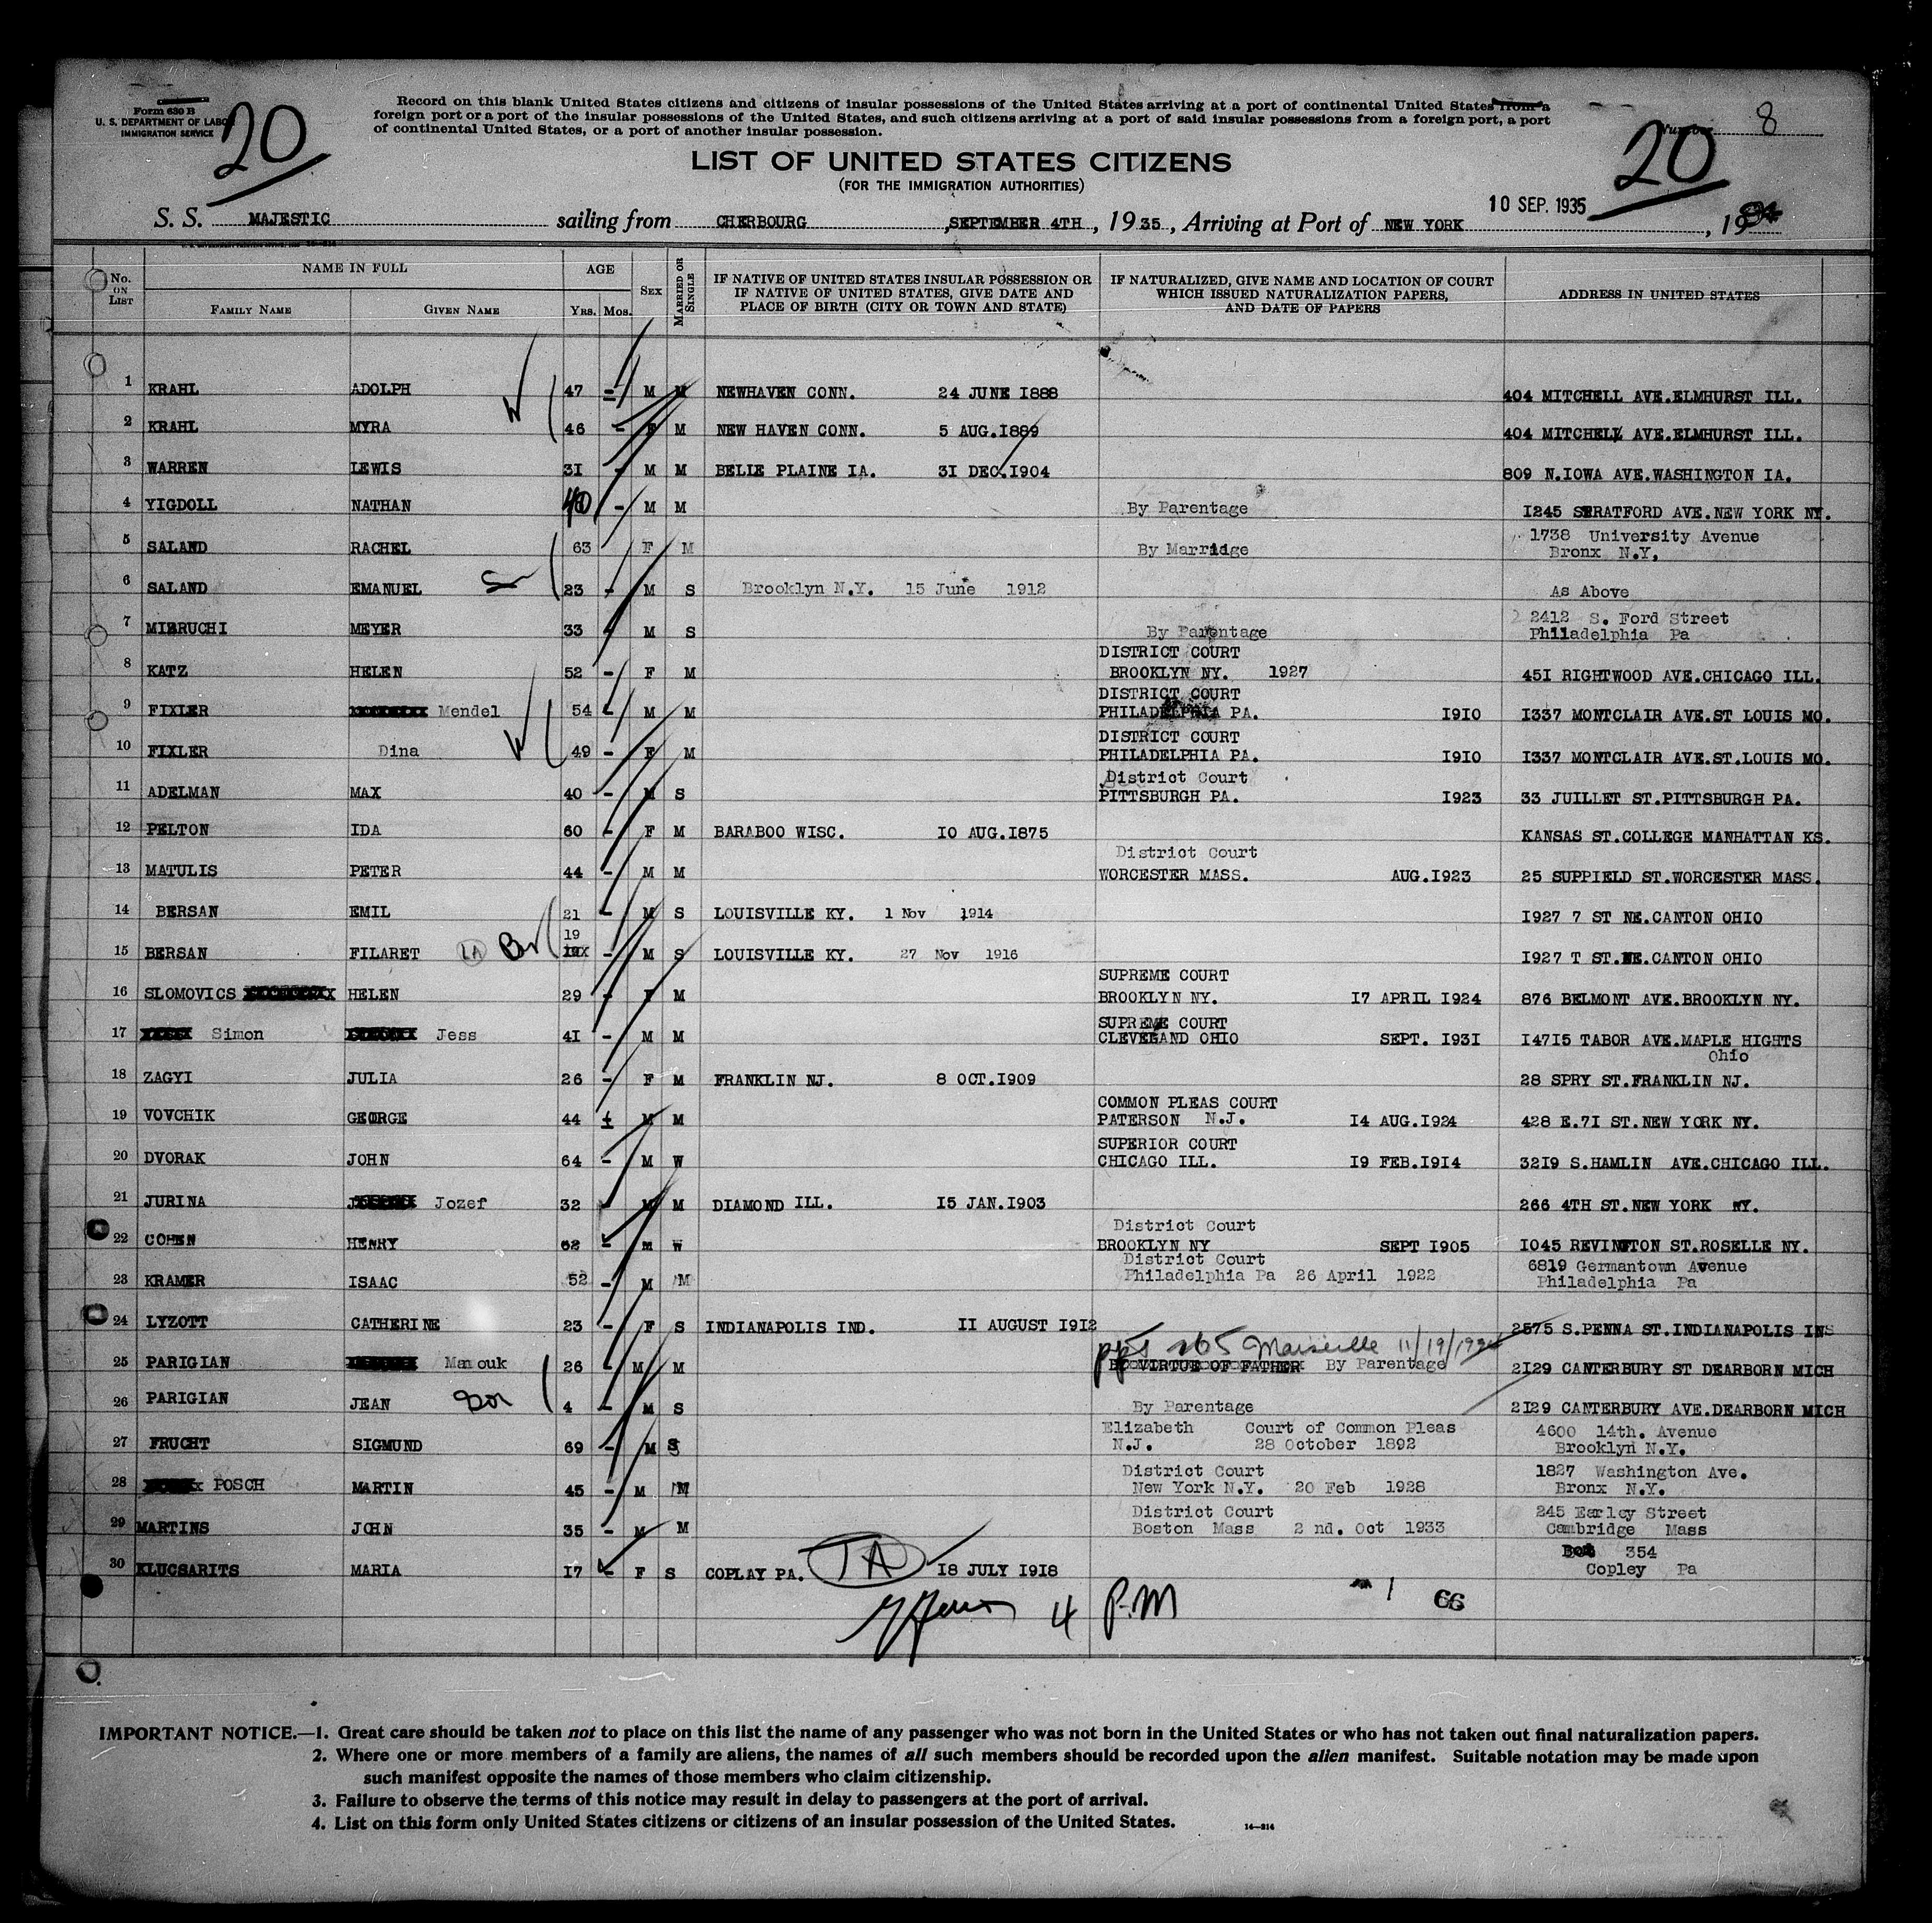 Form 630 B
U. S. DEPARTMENT OF LABOR
IMMIGRATION SERVICE
20
Record on this blank United States citizens and citizens of insular possessions of the United States arriving at a port of continental United States from a
foreign port or a port of the insular possessions of the United States, and such citizens arriving at a port of said insular possessions from a foreign port, a port
of continental United States, or a port of another insular possession.
Number 8
20
LIST OF UNITED STATES CITIZENS
(FOR THE IMMIGRATION AUTHORITIES)
10 SEP. 1935
S. S. MAJESTIC sailing from CHERBOURG ,SEPTEMBER 4TH , 19 35 , Arriving at Port of NEW YORK , 19
No. ON LIST
NAME IN FULL
FAMILY NAME GIVEN NAME
AGE
YRS. MOS.
SEX
MARRIED OR SINGLE
IF NATIVE OF UNITED STATES INSULAR POSSESSION OR
IF NATIVE OF UNITED STATES, GIVE DATE AND
PLACE OF BIRTH (CITY OR TOWN AND STATE)
IF NATURALIZED, GIVE NAME AND LOCATION OF COURT
WHICH ISSUED NATURALIZATION PAPERS,
AND DATE OF PAPERS
ADDRESS IN UNITED STATES
1 KRAHL ADOLPH 47 - M M NEWHAVEN CONN. 24 JUNE I888 404 MITCHELL AVE.ELMHURST ILL.
2 KRAHL MYRA 46 - F M NEW HAVEN CONN. 5 AUG.I889 404 MITCHELL AVE.ELMHURST ILL.
3 WARREN LEWIS 3I - M M BELLE PLAINE IA. 3I DEC.I904 809 N.IOWA AVE.WASHINGTON IA.
4 YIGDOLL NATHAN 40 - M M By Parentage I245 STRATFORD AVE.NEW YORK NY.
5 SALAND RACHEL 63 F M By Marridge 1738 University Avenue
Bronx N.Y,
6 SALAND EMANUEL 23 - M S Brooklyn N.Y. 15 June 1912 As Above
7 MIBRUCHI MEYER 33 - M S By Parentage 2412 S. Ford Street
Philadelphia Pa
DISTRICT COURT
8 KATZ HELEN 52 - F M BROOKLYN NY. 1927 45I RIGHTWOOD AVE.CHICAGO ILL.
DISTRICT COURT
9 FIXLER Mendel 54 - M M PHILADELPHIA PA. I9I0 I337 MONTCLAIR AVE.ST LOUIS MO.
DISTRICT COURT
10 FIXLER Dina 49 - F M PHILADELPHIA PA. I9I0 I337 MONTCLAIR AVE.ST.LOUIS MO.
District Court
11 ADELMAN MAX 40 - M S PITTSBURGH PA. I923 33 JUILLET ST.PITTSBURGH PA.
12 PELTON IDA 60 - F M BARABOO WISC. I0 AUG.I875 KANSAS ST.COLLEGE MANHATTAN KS.
District Court
13 MATULIS PETER 44 - M M WORCESTER MASS. AUG.I923 25 SUPPIELD ST.WORCESTER MASS.
14 BERSAN EMIL 21 - M S LOUISVILLE KY. 1 Nov 1914 I927 7 ST NE.CANTON OHIO
19
15 BERSAN FILARET - M S LOUISVILLE KY. 27 Nov 1916 I927 T ST.NE.CANTON OHIO
SUPREME COURT
16 SLOMOVICS HELEN 29 - F M BROOKLYN NY. I7 APRIL I924 876 BELMONT AVE.BROOKLYN NY.
SUPREME COURT
17 Simon Jess 4I - M M CLEVELAND OHIO SEPT. I93I I47I5 TABOR AVE.MAPLE HIGHTS
Ohio
18 ZAGYI JULIA 26 - F M FRANKLIN NJ. 8 OCT.I909 28 SPRY ST.FRANKLIN NJ.
COMMON PLEAS COURT
19 VOVCHIK GEORGE 44 M M PATERSON N.J. I4 AUG.I924 428 E.7I ST.NEW YORK NY.
SUPERIOR COURT
20 DVORAK JOHN 64 - M W CHICAGO ILL. I9 FEB.I9I4 32I9 S.HAMLIN AVE.CHICAGO ILL.
21 JURINA Jozef 32 M M DIAMOND ILL. I5 JAN.I903 266 4TH ST.NEW YORK NY.
District Court
22 COHEN HENRY 62 - M W BROOKLYN NY SEPT I905 I045 REVINGTON ST.ROSELLE NY.
District Court
23 KRAMER ISAAC 52 - M M Philadelphia Pa 26 April 1922 6819 Germantown Avenue
Philadelphia Pa
24 LYZOTT CATHERINE 23 - F S INDIANAPOLIS IND. II AUGUST I9I2 2575 S.PENNA ST.INDIANAPOLIS INS
ppt 265 Marseille 11/19/
25 PARIGIAN Manouk 26 - M M VIRTUE OF FATHER By Parentage 2I29 CANTERBURY ST DEARBORN MICH
26 PARIGIAN JEAN 4 - M S By Parentage 2I29 CANTERBURY AVE.DEARBORN MICH
27 FRUCHT SIGMUND 69 - M S Elizabeth Court of Common Pleas
N.J. 28 October 1892 4600 14th. Avenue
Brooklyn N.Y.
28 POSCH MARTIN 45 - M M District Court
New York N.Y. 20 Feb 1928 1827 Washington Ave.
Bronx N.Y.
29 MARTINS JOHN 35 - M M District Court
Boston Mass 2 nd. Oct 1933 245 Earley Street
Cambridge Mass
30 KLUCSARITS MARIA I7 - F S COPLAY PA. IA I8 JULY I9I8 Box 354
Copley Pa
4 P.M 1 66
IMPORTANT NOTICE.—1. Great care should be taken not to place on this list the name of any passenger who was not born in the United States or who has not taken out final naturalization papers.
2. Where one or more members of a family are aliens, the names of all such members should be recorded upon the alien manifest. Suitable notation may be made upon
such manifest opposite the names of those members who claim citizenship.
3. Failure to observe the terms of this notice may result in delay to passengers at the port of arrival.
4. List on this form only United States citizens or citizens of an insular possession of the United States.
14—814